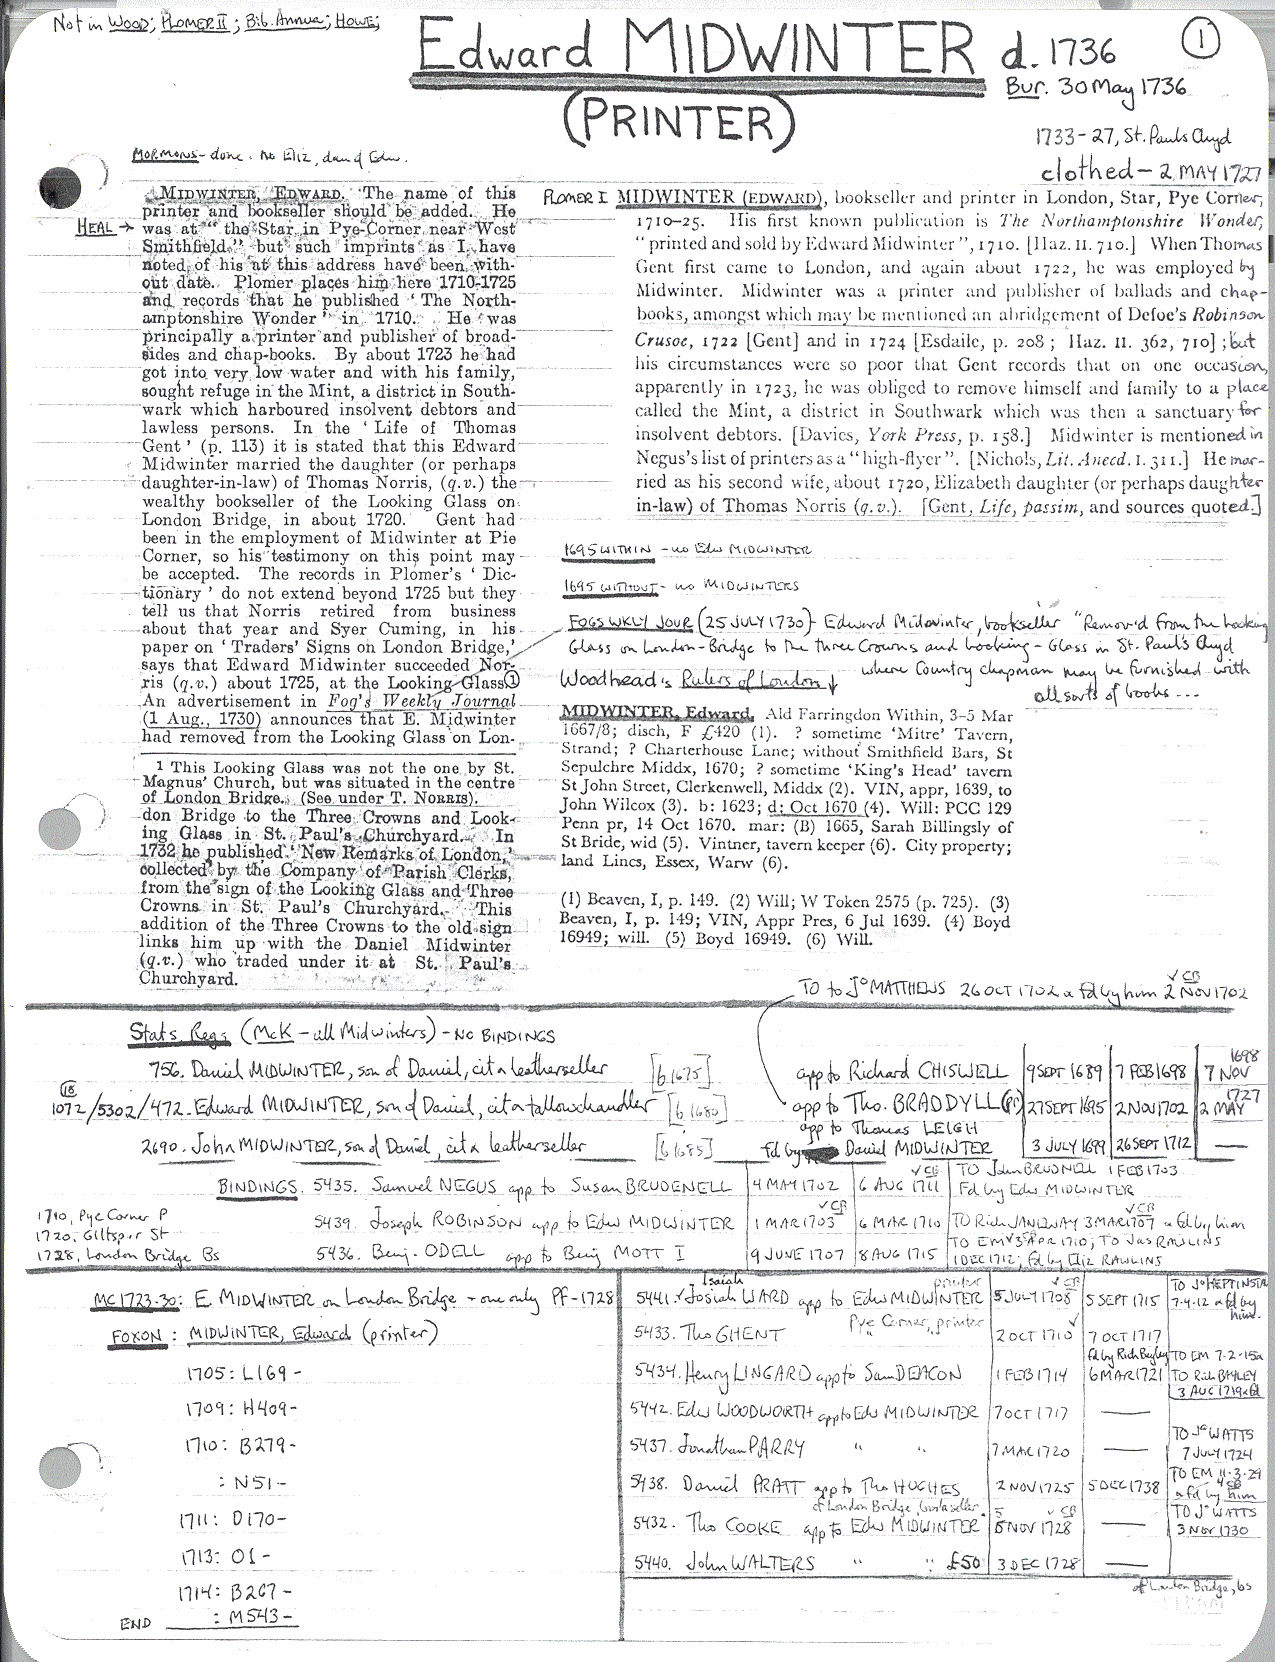 Not in WOOD; PLOMER II; Bib. Annua; HOWE;
Edward MIDWINTER d. 1736
①
Bur. 30 May 1736
(PRINTER)
1733-27, St. Pauls Chyd
clothed - 2 MAY 1727
MORMONS - done. no Eliz, dau of Edw.
HEAL →
MIDWINTER, EDWARD. 'The name of this
printer and bookseller should be added. He
was at "the Star in Pye-Corner near West
Smithfield," but such imprints as I have
noted of his at this address have been with-
out date. Plomer places him here 1710-1725
and records that he published 'The North-
amptonshire Wonder' in 1710. He was
principally a printer and publisher of broad-
sides and chap-books. By about 1723 he had
got into very low water and with his family,
sought refuge in the Mint, a district in South-
wark which harboured insolvent debtors and
lawless persons. In the 'Life of Thomas
Gent' (p. 113) it is stated that this Edward
Midwinter married the daughter (or perhaps
daughter-in-law) of Thomas Norris, (q.v.) the
wealthy bookseller of the Looking Glass on
London Bridge, in about 1720. Gent had
been in the employment of Midwinter at Pie
Corner, so his testimony on this point may
be accepted. The records in Plomer's 'Dic-
tionary' do not extend beyond 1725 but they
tell us that Norris retired from business
about that year and Syer Cuming, in his
paper on 'Traders' Signs on London Bridge,'
says that Edward Midwinter succeeded Nor-
ris (q.v.) about 1725, at the Looking Glass①
An advertisement in Fog's Weekly Journal
(1 Aug., 1730) announces that E. Midwinter
had removed from the Looking Glass on Lon-
1 This Looking Glass was not the one by St.
Magnus' Church, but was situated in the centre
of London Bridge. (See under T. NORRIS).
don Bridge to the Three Crowns and Look-
ing Glass in St. Paul's Churchyard. In
1732 he published 'New Remarks of London,'
collected by the Company of Parish Clerks,
from the sign of the Looking Glass and Three
Crowns in St. Paul's Churchyard. This
addition of the Three Crowns to the old sign
links him up with the Daniel Midwinter
(q.v.) who traded under it at St. Paul's
Churchyard.
PLOMER I MIDWINTER (EDWARD), bookseller and printer in London, Star, Pye Corner,
1710-25. His first known publication is The Northamptonshire Wonder,
"printed and sold by Edward Midwinter", 1710. [Haz. II. 710.] When Thomas
Gent first came to London, and again about 1722, he was employed by
Midwinter. Midwinter was a printer and publisher of ballads and chap-
books, amongst which may be mentioned an abridgement of Defoe's Robinson
Crusoe, 1722 [Gent] and in 1724 [Esdaile, p. 208; Haz. II. 362, 710]; but
his circumstances were so poor that Gent records that on one occasion,
apparently in 1723, he was obliged to remove himself and family to a place
called the Mint, a district in Southwark which was then a sanctuary for
insolvent debtors. [Davies, York Press, p. 158.] Midwinter is mentioned in
Negus's list of printers as a "high-flyer". [Nichols, Lit. Anecd. I. 311.] He mar-
ried as his second wife, about 1720, Elizabeth daughter (or perhaps daughter
in-law) of Thomas Norris (q.v.). [Gent, Life, passim, and sources quoted.]
1695 WITHIN - no Edw MIDWINTER
1695 WITHOUT - no MIDWINTERS
FOGS WKLY JOUR (25 JULY 1730) - Edward Midwinter, bookseller "Remov'd from the looking
Glass on London-Bridge to the three Crowns and Looking-Glass in St. Paul's Chyd
where Country chapman may be furnished with
all sorts of books ...
Woodhead's Rulers of London ↓
MIDWINTER, Edward. Ald Farringdon Within, 3–5 Mar
1667/8; disch, F £420 (1). ? sometime 'Mitre' Tavern,
Strand; ? Charterhouse Lane; without Smithfield Bars, St
Sepulchre Middx, 1670; ? sometime 'King's Head' tavern
St John Street, Clerkenwell, Middx (2). VIN, appr, 1639, to
John Wilcox (3). b: 1623; d: Oct 1670 (4). Will: PCC 129
Penn pr, 14 Oct 1670. mar: (B) 1665, Sarah Billingsly of
St Bride, wid (5). Vintner, tavern keeper (6). City property;
land Lincs, Essex, Warw (6).
(1) Beaven, I, p. 149. (2) Will; W Token 2575 (p. 725). (3)
Beaven, I, p. 149; VIN, Appr Pres, 6 Jul 1639. (4) Boyd
16949; will. (5) Boyd 16949. (6) Will.
TO to Jo MATTHEWS 26 OCT 1702 & fd by him 2 NOV 1702
✓ CB
Stats Regs (McK - all Midwinters) - NO BINDINGS
756. Daniel MIDWINTER, son of Daniel, cit & leatherseller [b 1675] app to Richard CHISWELL 9 SEPT 1689 7 FEB 1698 7 NOV 1698
1072/5302/472. Edward MIDWINTER, son of Daniel, cit & tallowchandler [b 1680] app to Tho. BRADDYLL (Pr) 27 SEPT 1695 2 NOV 1702 2 MAY 1727
app to Thomas LEIGH
2690. John MIDWINTER, son of Daniel, cit & leatherseller [b 1685] fd by Daniel MIDWINTER 3 JULY 1699 26 SEPT 1712 —
BINDINGS. 5435. Samuel NEGUS app to Susan BRUDENELL 4 MAY 1702 6 AUG 1711 ✓ CB TO John BRUDNELL 1 FEB 1703
Fd by Edw MIDWINTER
1710, Pye Corner P
1720, Giltspur St
1728, London Bridge Bs
5439. Joseph ROBINSON app to Edw MIDWINTER 1 MAR 1703 ✓ CB 6 MAR 1710 TO Rich JANEWAY 3 MAR 1707 & fd by him ✓ CB
5436. Benj. ODELL app to Benj MOTT I 9 JUNE 1707 8 AUG 1715 TO EM 3 APR 1710; TO Jas RAWLINS
1 DEC 1712; fd by Eliz RAWLINS
MC 1723-30: E. MIDWINTER on London Bridge - one only PF - 1728
FOXON: MIDWINTER, Edward (printer)
1705: L169 -
1709: H409 -
1710: B279 -
: N51 -
1711: D170 -
1713: O1 -
1714: B267 -
: M543 -
END
Isaiah
5441. Josiah WARD app to Edw MIDWINTER printer 5 JULY 1708 ✓ CB 5 SEPT 1715 TO Jo HEPTINSTA
7-4-12 & fd by
him.
Pye Corner, printer
5433. Tho GHENT " " 2 OCT 1710 ✓ 7 OCT 1717
fd by Rich Bayley TO EM 7-2-15
5434. Henry LINGARD app to Sam DEACON 1 FEB 1714 6 MAR 1721 TO Rich BAYLEY
3 AUG 1719
5442. Edw WOODWORTH app to Edw MIDWINTER 7 OCT 1717 —
5437. Jonathan PARRY " " 7 MAR 1720 — TO Jo WATTS
7 JULY 1724
5438. Daniel PRATT app to Tho HUGHES 2 NOV 1725 5 DEC 1738 TO EM 11-3-29
CB
& fd by him
of London Bridge, bookseller.
5432. Tho COOKE app to Edw MIDWINTER. 5 NOV 1728 ✓ CB — TO Jo WATTS
3 NOV 1730
5440. John WALTERS " " £50 3 DEC 1728 —
of London Bridge, bs